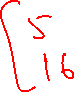 5
16